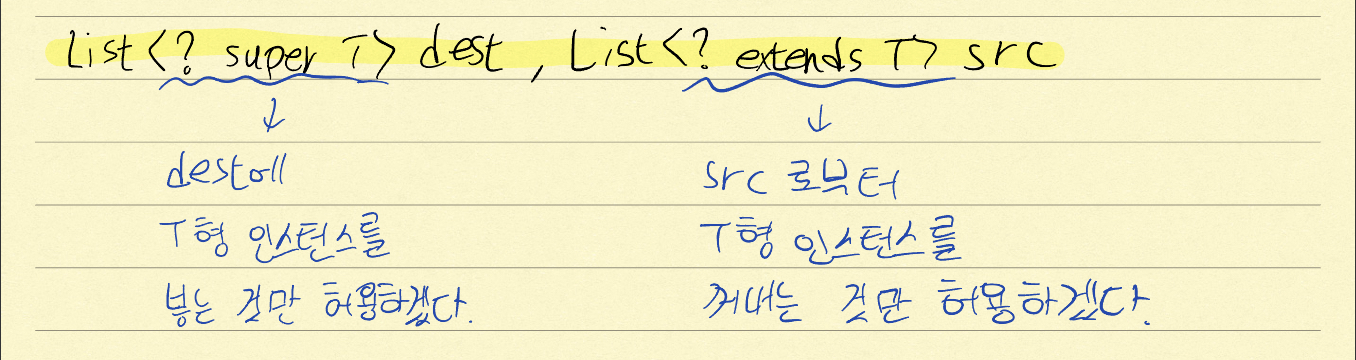 List<? super T> dest , List<? extends T> src
↓ ↓
dest에
T형 인스턴스를
넣는 것만 허용하겠다.
src 로부터
T형 인스턴스를
꺼내는 것만 허용하겠다.